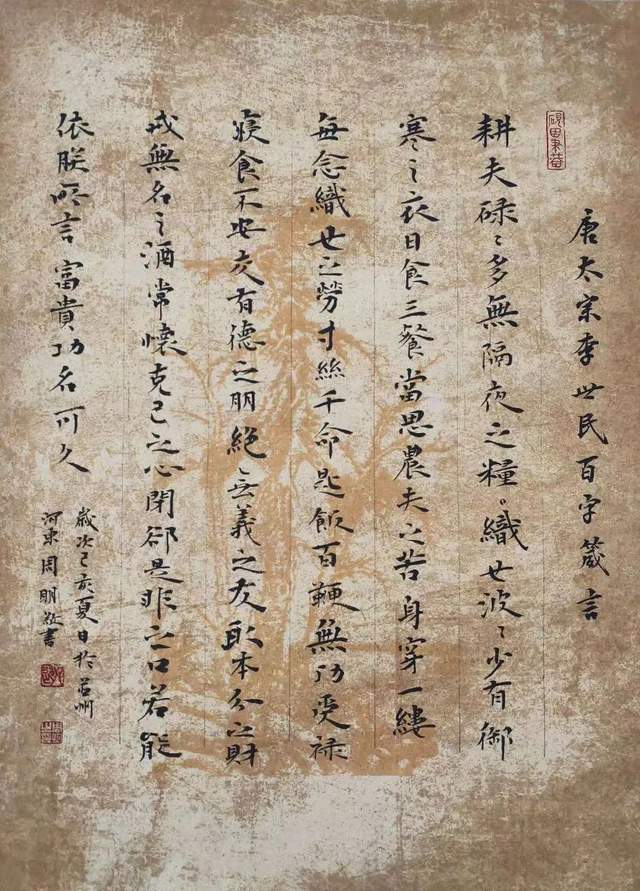 唐太宗李世民百字箴言
耕夫碌〻多無隔夜之糧。織女波〻少有御
寒之衣日食三餐當思農夫之苦身穿一縷
每念織女之勞寸絲千命匙飯百鞭無功受祿
寢食不安交有德之朋絕無義之友取本分之財
戒無名之酒常懷克己之心閉卻是非之口若能
依朕所言富貴功名可久
歲次己亥夏日於
河東周明敬書